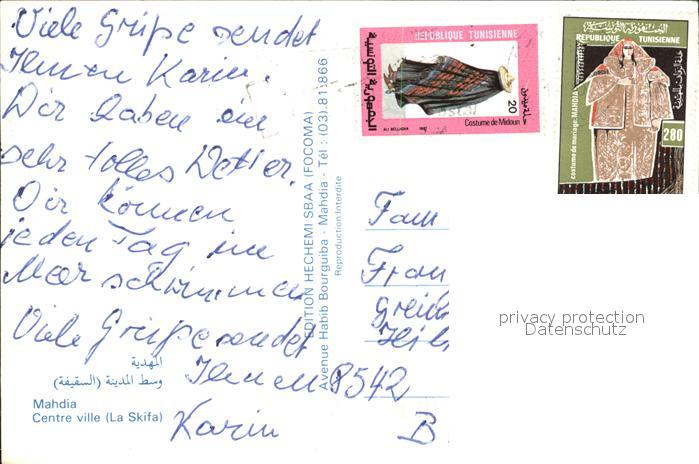 Viele Grüße sendet
Ihnen Karin.
Wir haben ein
sehr tolles Wetter.
Wir können
jeden Tag im
Meer schwimmen
Viele Grüße sendet
Ihnen
Karin
المهدية
وسط المدينة (السقيفة)
Mahdia
Centre ville (La Skifa)
EDITION HECHEMI SBAA (FOCOMA)
Avenue Habib Bourguiba - Mahdia - Tél : (03).81.866
Reproduction Interdite
REPUBLIQUE TUNISIENNE
الجمهورية التونسية
20
Costume de Midoun
REPUBLIQUE TUNISIENNE
costume de mariage: MAHDIA
280
Fam
Fran
8542
B
privacy protection
Datenschutz